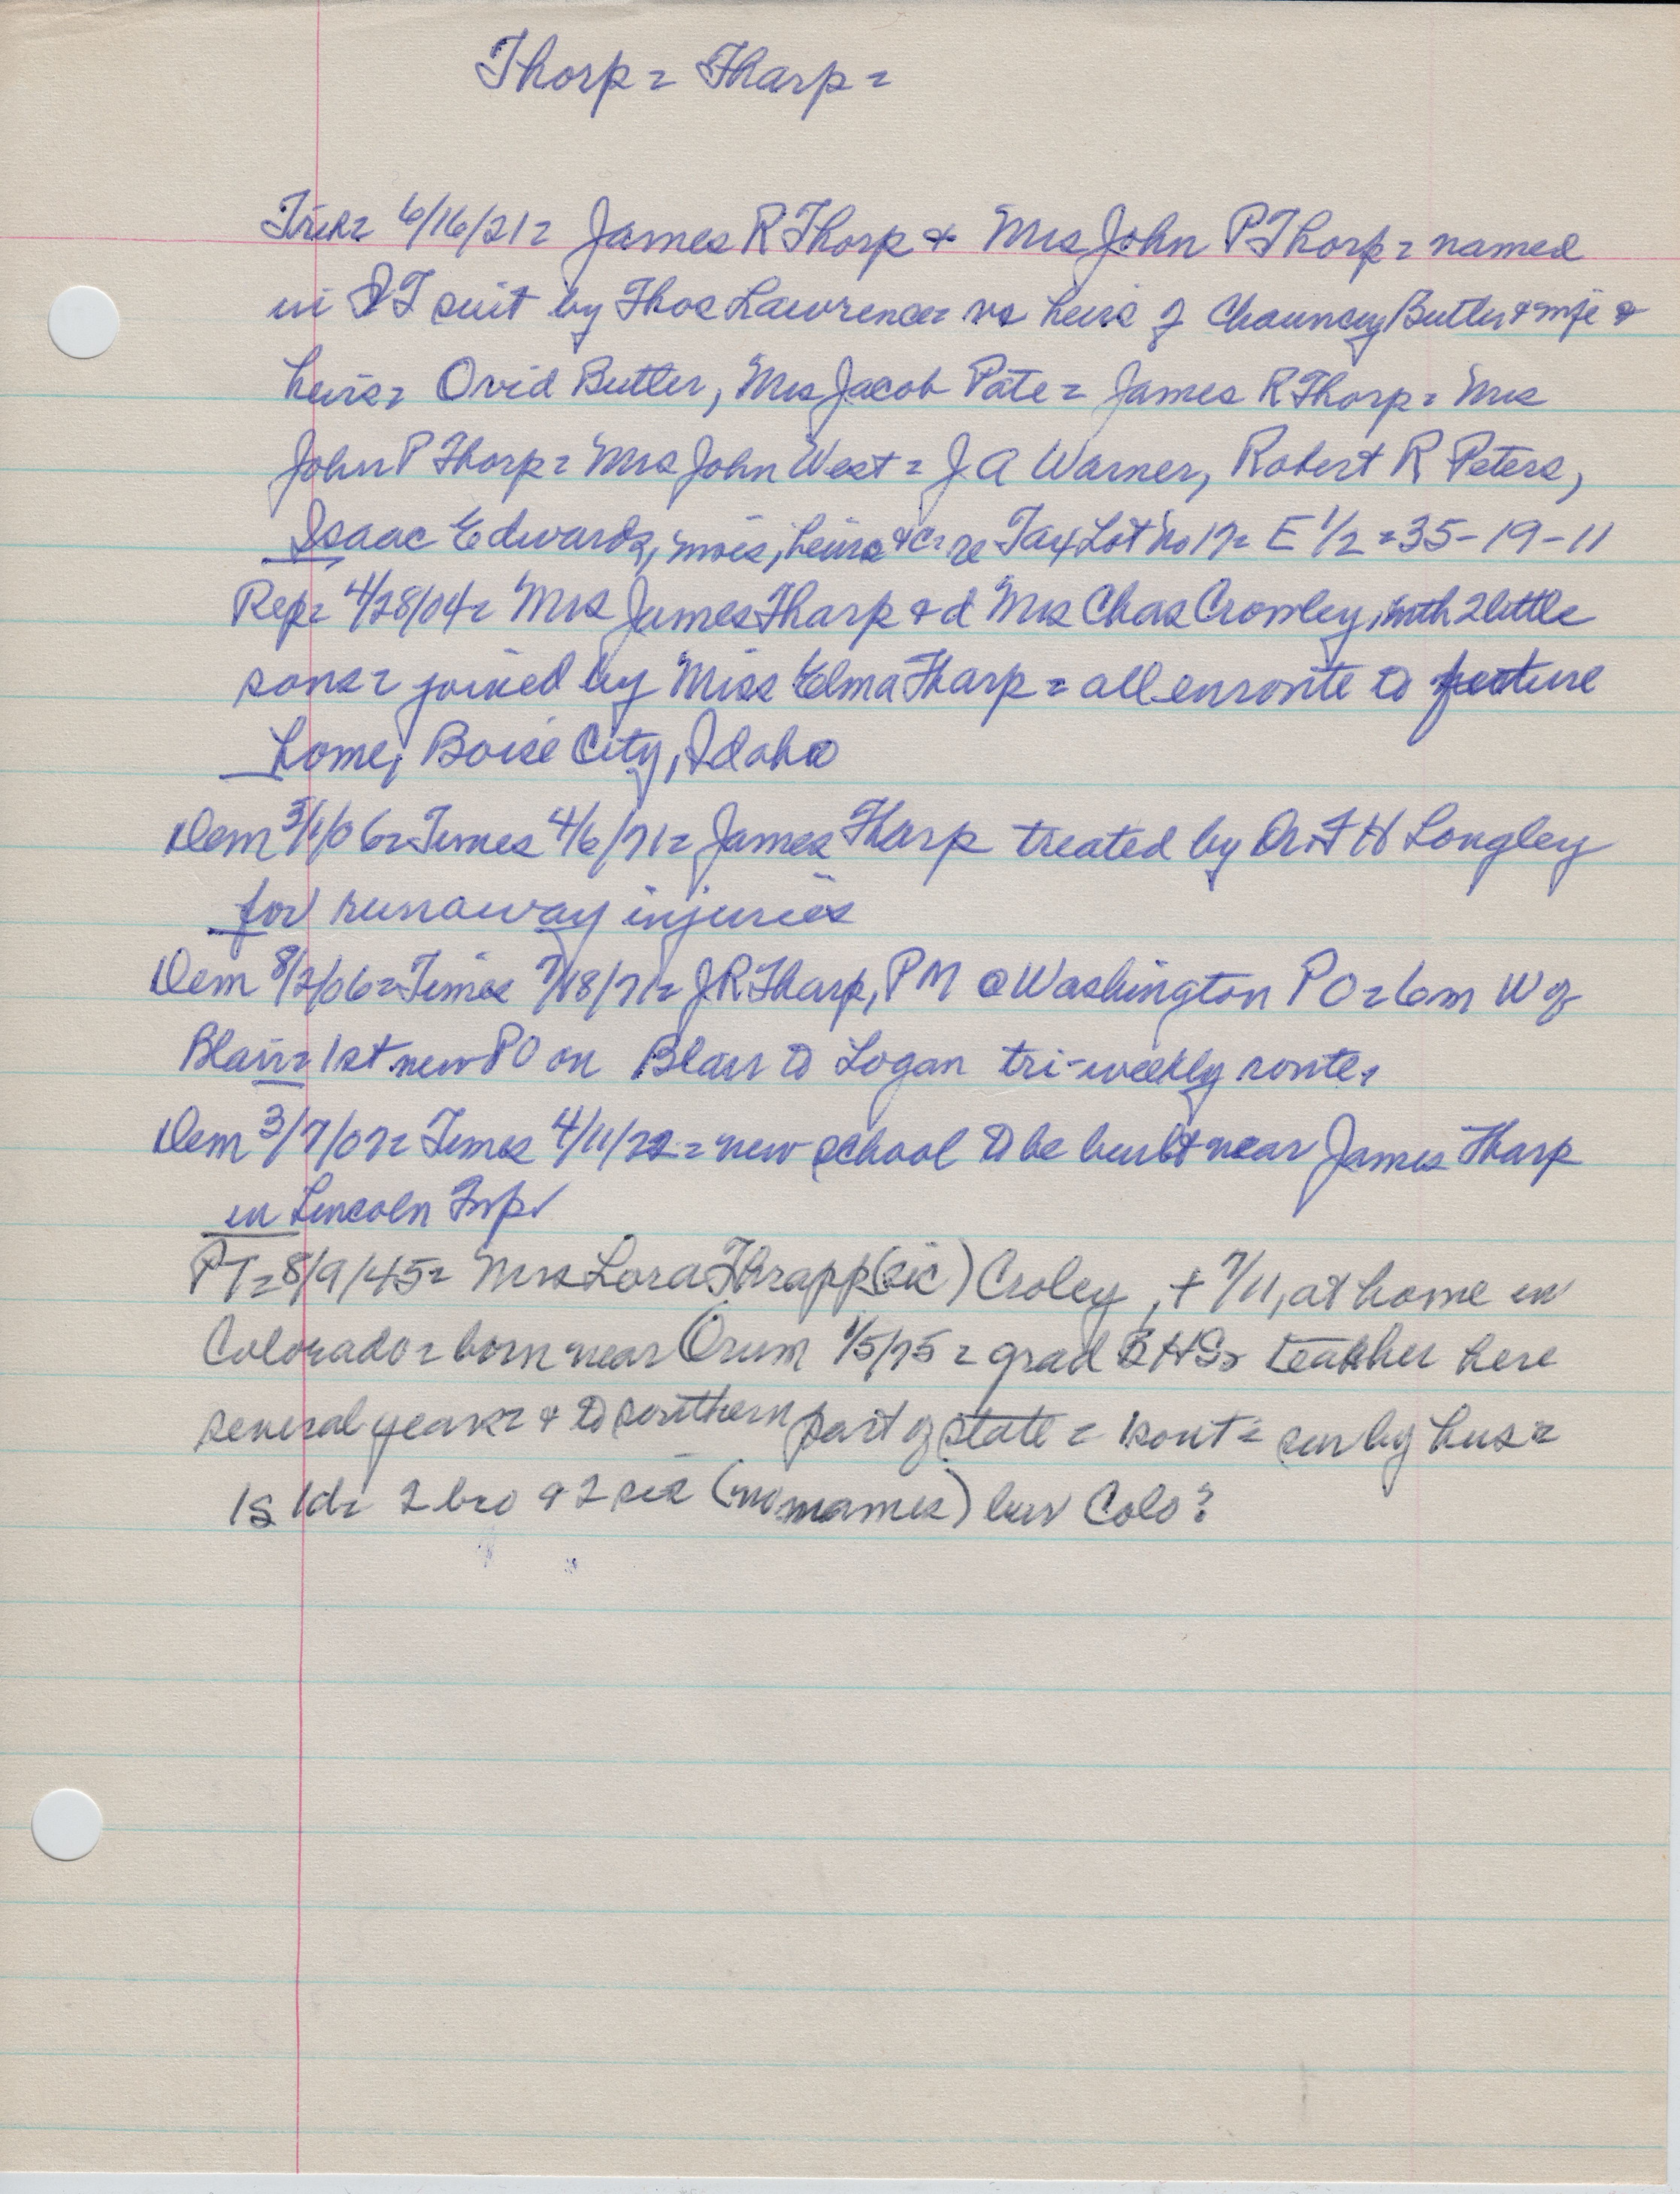 Thorp = Tharp =
Trib= 6/16/21= James R Thorp & Mrs John P Thorp = named
in QT suit by Thos Lawrence= vs heirs of Chauncey Butler & wife &
heirs= Ovid Butler, Mrs Jacob Pate = James R Thorp = Mrs
John P Thorp = Mrs John West = J A Warner, Robert R Peters,
Isaac Edwards, heirs &c= re Tax Lot No 17= E 1/2 = 35-19-11
Rep= 4/28/04= Mrs James Tharp & d Mrs Chas Crowley, with 2 little
sons= joined by Miss Elma Tharp = all enroute to future
home, Boise City, Idaho
Dem 3/1/06= Times 4/6/71= James Tharp treated by Dr F H Longley
for runaway injuries
Dem 8/2/06= Times 7/18/71= J R Tharp, PM @ Washington PO = 6m W of
Blair= 1st new PO on Blair to Logan tri-weekly route.
Dem 3/7/07= Times 4/11/72 = new school to be built near James Tharp
in Lincoln Twp
PT= 8/9/45= Mrs Lora Thrapp (sic) Croley, + 7/11, at home in
Colorado = born near Orum 1/5/75 = grad BHS= teacher here
several years= & to southern part of state = sur by hus =
1s 1d= 2 bro & 2 sis (no names) bur Colo?